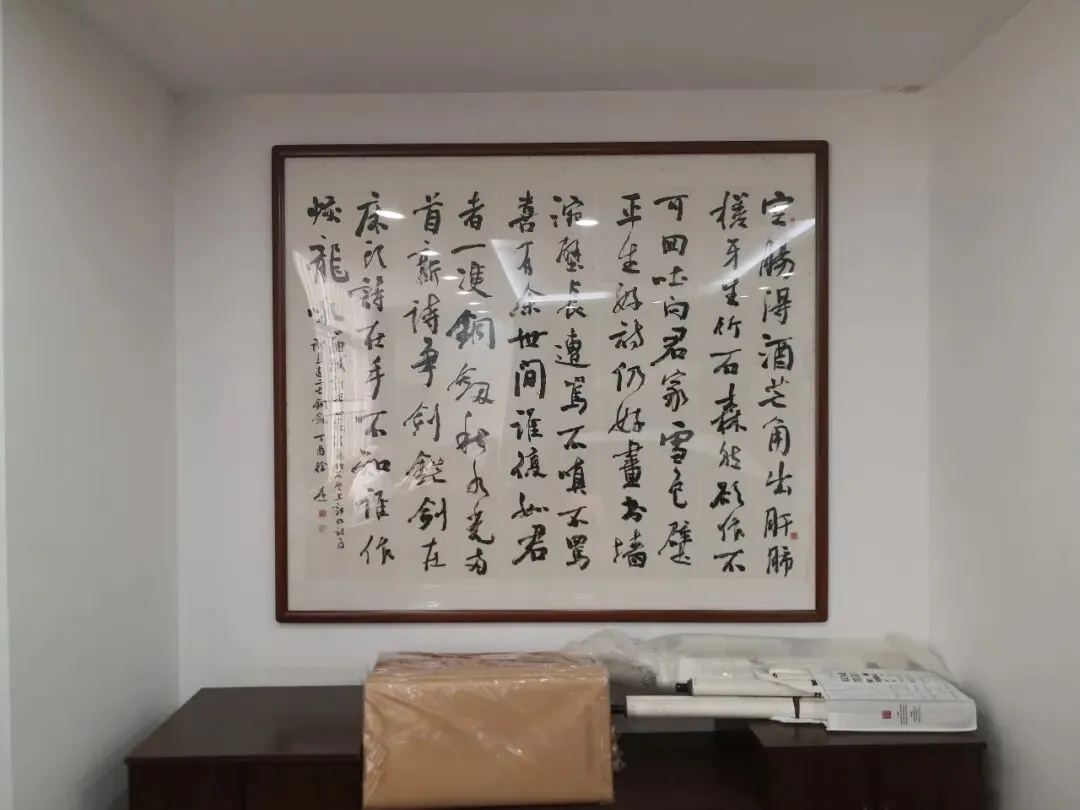 空腸得酒芒角出肝肺
槎牙生竹石森然欲作不
可回吐向君家雪色壁
平生好詩仍好畫書墻
涴壁長遭罵不嗔不罵
喜有余世間誰復如君
者一雙銅劍秋水光兩
首新詩爭劍鋩劍在
床頭詩在手不知誰作
蛟龍吼
壁上郭作詩為
謝且遺二古銅劍 丁酉徐